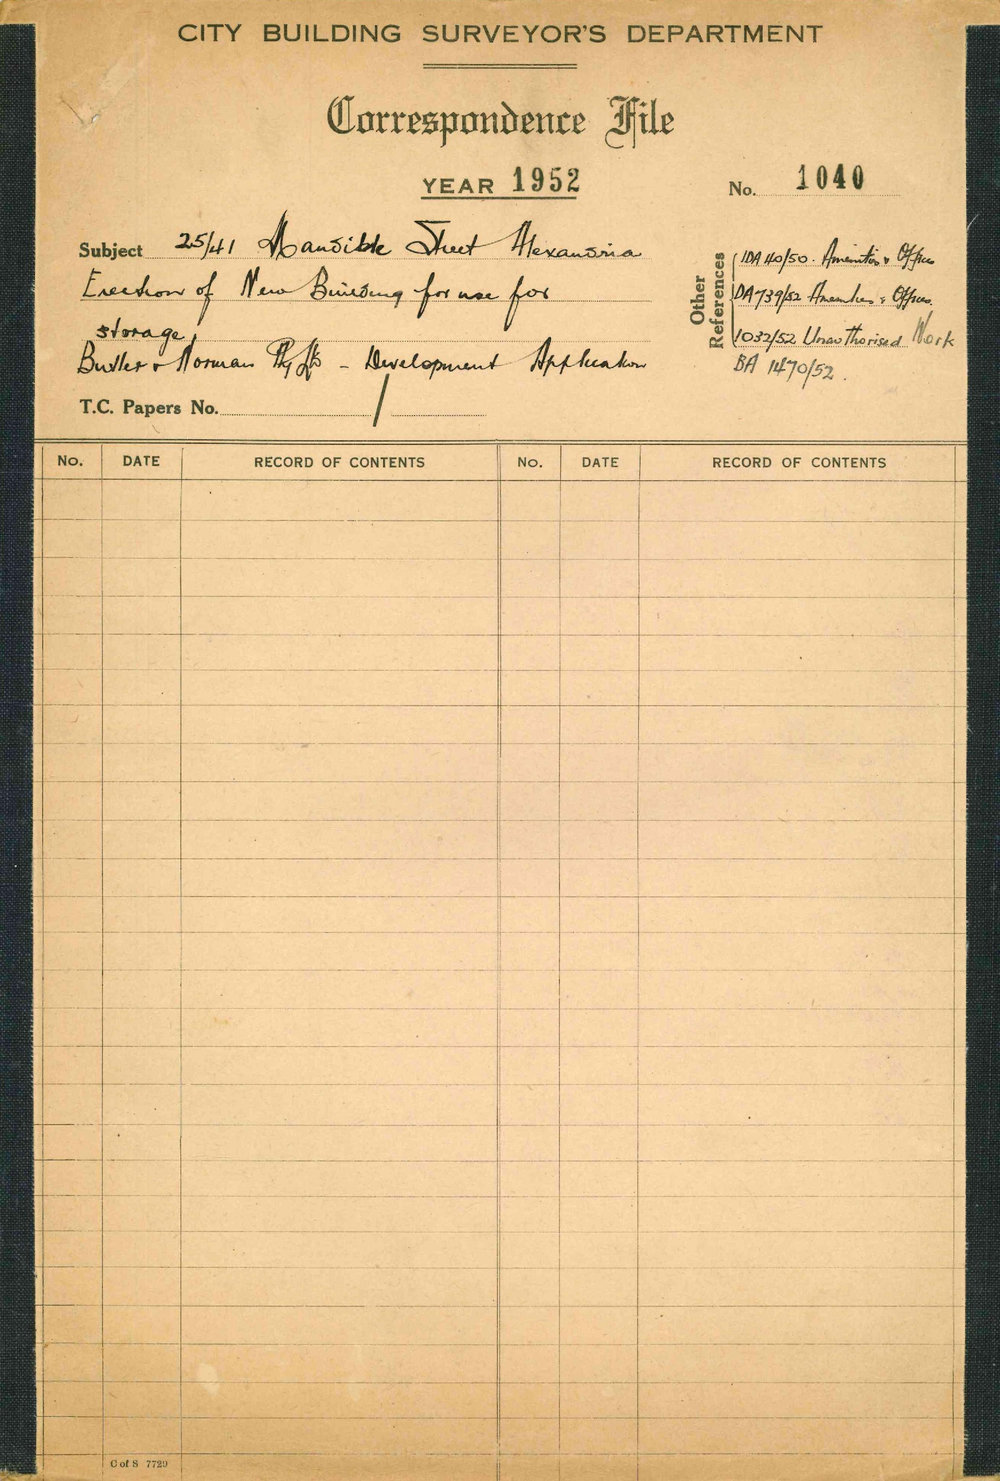 CITY BUILDING SURVEYOR'S DEPARTMENT
Correspondence File
YEAR 1952
No. 1040
Subject 25/41 Mandible Street Alexandria
Erection of New Building for use for
storage
Butler & Norman Pty Ltd - Development Application
T.C. Papers No. /
Other References
IDA 40/50. Amenities & Offices
DA 739/52 Amenities & Offices.
1032/52 Unauthorised Work
BA 1470/52.
No. DATE RECORD OF CONTENTS No. DATE RECORD OF CONTENTS
C of S 7729